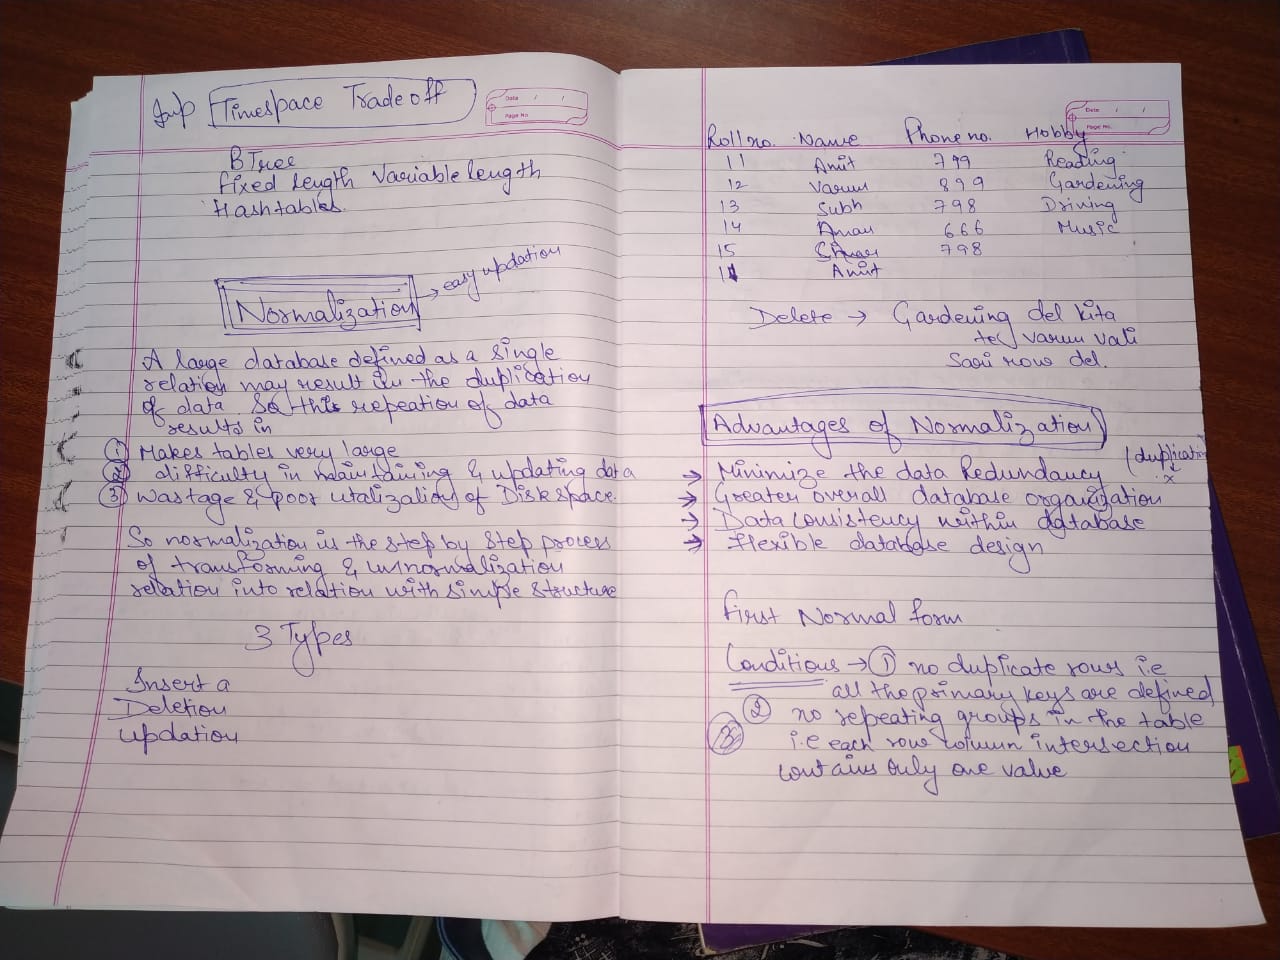 Imp Timespace Trade off
Date / /
Page No.
B Tree
Fixed Length Variable length
Hashtables.
Normalization → easy updation
A large database defined as a single
relation may result in the duplication
of data. So this repeation of data
results in
1) Makes tables very large
2) difficulty in maintaining & updating data
3) Wastage & poor utalization of Disk space.
So normalization is the step by step process
of transforming & unnormalization
relation into relation with simple structure
3 Types
Insert a
Deletion
updation
Date / /
Page No.
Roll no. Name Phone no. Hobby
11 Amit 799 Reading
12 Varun 899 Gardening
13 Subh 798 Driving
14 Aman 666 Music
15 798
11 Amit
Delete → Gardening del kita
te varun vali
Sari row del.
Advantages of Normalization
→ Minimize the data Redundancy (duplication
x
→ Greater overall database organization
→ Data consistency within database
→ flexible database design
First Normal form
Conditions → 1 no duplicate rows i.e
all the primary keys are defined
2 no repeating groups in the table
3 i.e each row column intersection
contains only one value